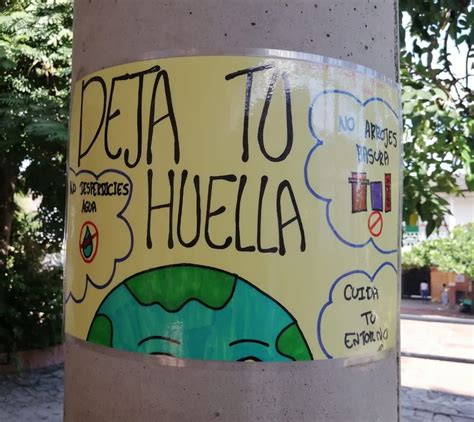 DEJA TU
HUELLA
NO DESPERDICIES
AGUA
NO ARROJES
BASURA
CUIDA
TU
ENTORNO